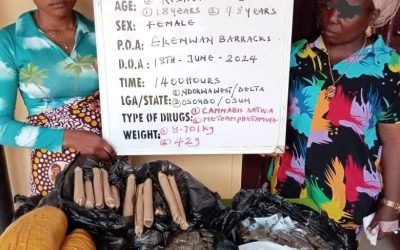 AGE: ① 18 YEARS ② 48 YEARS
SEX: FEMALE
P.O.A: EKENWAN BARRACKS
D.O.A: 18TH-JUNE-2024
TIME: 1400HOURS
① NDOKWA WEST/DELTA
LGA/STATE: ② OSOGBO/OSUN
TYPE OF DRUGS: ① CANNABIS SATIVA
② METHAMPHETAMINE
WEIGHT: ① 8.701kg
② 42g